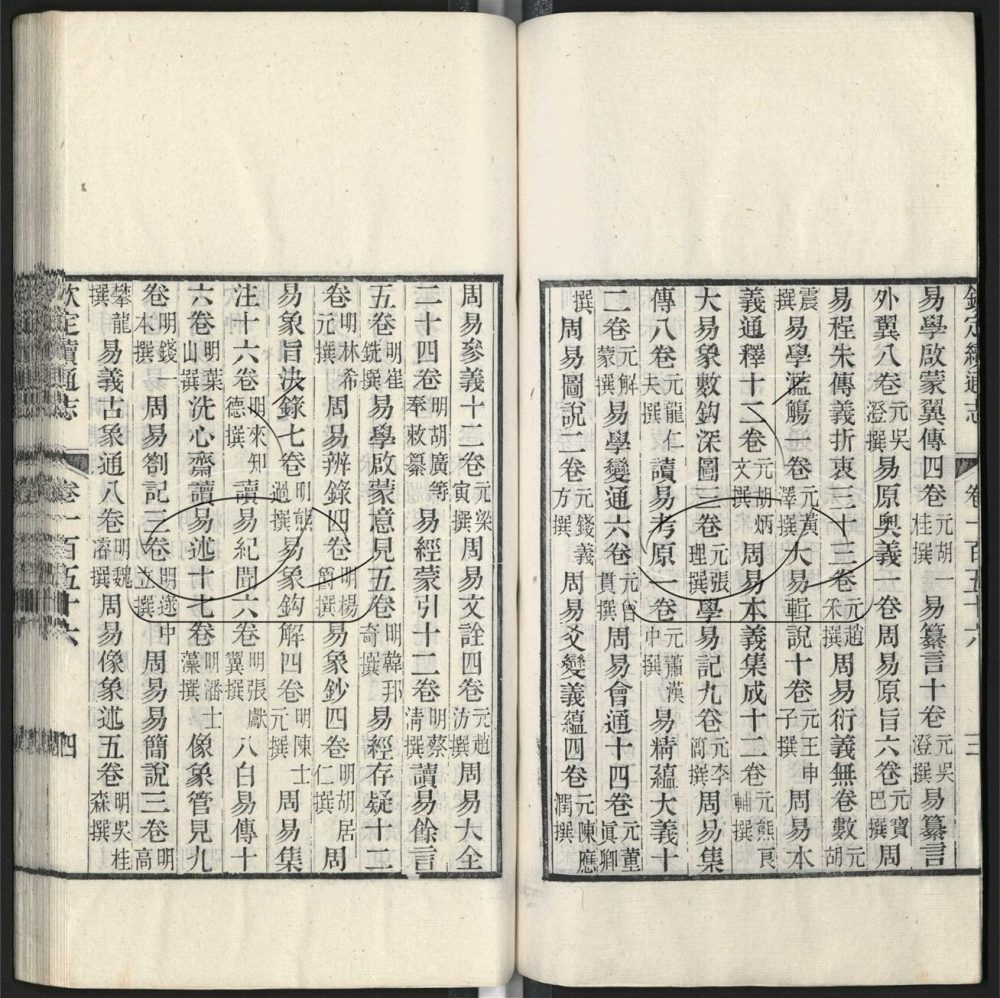 欽定續通志 卷一百五十六 三
易學啟蒙翼傳四卷元胡一桂撰易纂言十卷元吳澄撰易纂言
外翼八卷元吳澄撰易原奧義一卷周易原旨六卷元寶巴撰周
易程朱傳義折衷三十三卷元趙采撰周易衍義無卷數元胡
震撰易學濫觴一卷元黃澤撰大易輯說十卷元王申子撰周易本
義通釋十二卷元胡炳文撰周易本義集成十二卷元熊良輔撰
大易象數鈎深圖三卷元張理撰學易記九卷元李簡撰周易集
傳八卷元龍仁夫撰讀易考原一卷元蕭漢中撰易精蘊大義十
二卷元解蒙撰易學變通六卷元曾貫撰周易會通十四卷元董真卿
撰周易圖說二卷元錢義方撰周易爻變義蘊四卷元陳應潤撰
周易參義十二卷元梁寅撰周易文詮四卷元趙汸撰周易大全
二十四卷明胡廣等奉敕纂易經蒙引十二卷明蔡清撰讀易餘言
五卷明崔銑撰易學啟蒙意見五卷明韓邦奇撰易經存疑十二
卷明林希元撰周易辨錄四卷明楊爵撰易象鈔四卷明胡居仁撰周
易象旨決錄七卷明熊過撰易象鈎解四卷明陳士元撰周易集
注十六卷明來知德撰讀易紀聞六卷明張獻翼撰八白易傳十
六卷明葉山撰洗心齋讀易述十七卷明潘士藻撰像象管見九
卷明錢一本撰周易劄記三卷明逯中立撰周易易簡說三卷明高
攀龍撰易義古象通八卷明魏濬撰周易像象述五卷明吳桂森撰
欽定續通志 卷一百五十六 四